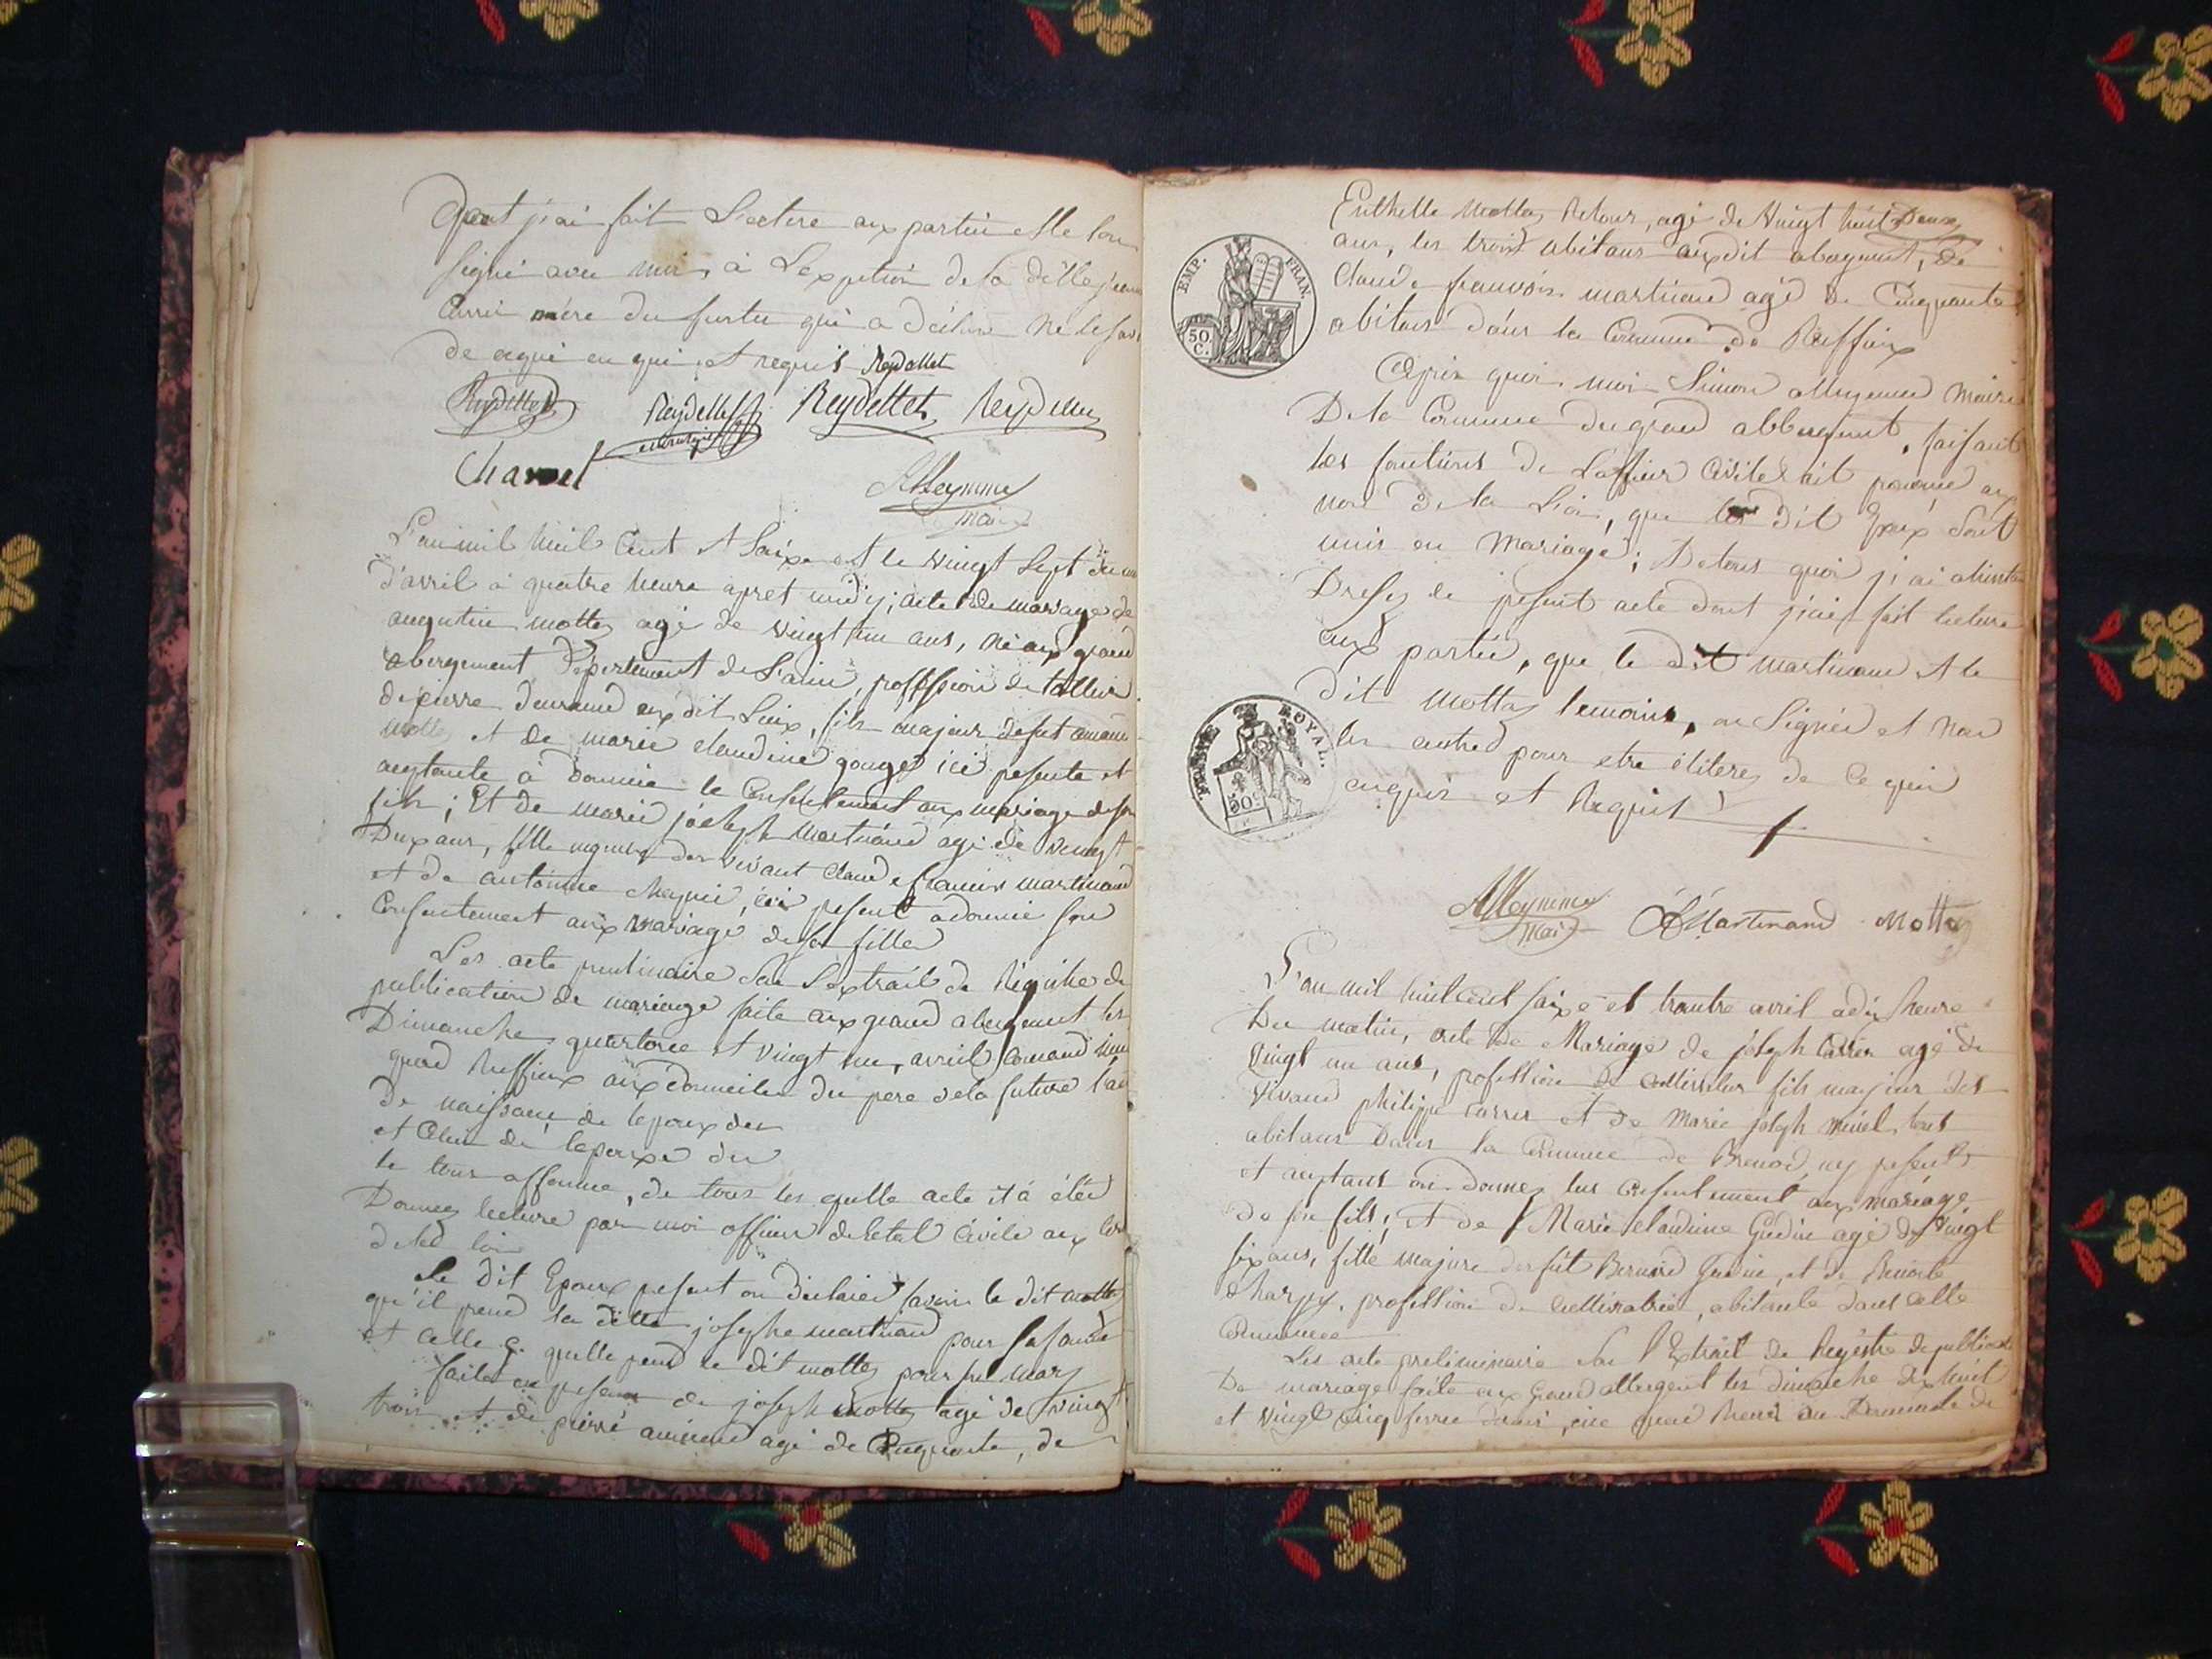 Dont j'ai fait Lecture aux partiu et le tou
signé avec moi, à L'exption de la ditte jeanne
Carri mére du furtu qui a déclaré ne le savoi
de aquis en qui et requis Reydellet
Reydellet Reydellet Reydellet Reydellet
Charvet
Alleymme
Maire
L'an mil huil Cent et Saize et le vingt Sept du moi
d'avril à quatre heure apret midy; acte de mariage de
augustin mottez agé de vingt un ans, né aux grand
abergement département de L'ain, proffession de tallieur
de pierre demeurand aux dit Lieux, fils majeur de fut
mottez et de marie claudine gouges ici pesente et
aceptante à donnié le Consentement aux mariage de son
fils; Et de marie joseph Martinand agé de vingt
Deux ans, fille majeur des vivant Claude françois martinand
et de antoinne, ici pesent a donnié son
Consentement aux mariage de sa fille
Les acte preliminaire Son L'extrait de Régistre de
publication de mariage faite aux grand abergement les
Dimanche quatorze et vingt un avril
quau Ruffieux aux domicile du pére de la future l'ac
de naissance de lepoux du
et Celui de lepouxe du
le tous afforme, de tous les quelle acte il à étée
Donnez lecture par moi officier de letat Civile aux ter
de la loi
Le dit Epoux pesent on déclaré savoir le dit mottez
qu'il prend la ditte josephe martinand pour sa famme
et Celle ç. quelle prend le dit mottez pour son mary
faite en pesence de joseph mottez agé de vingt
trois et de pierre agé de Cinquante, de
mottez Retour, agé de Vingt huit Deux
ans, les trois abitans auxdit abergement, De
Claude françois martinand agé de Cinquante
abitant dans la Commune de Ruffieux
Après quoi moi Simon alleymme Maire
De la Commune du grand abbergement, faisant
les fontions de L'afficier Civile ait prononcé aux
non de la Loi, que les dit Epoux sont
unis en Mariage; De tous quoi j'ai
Dressez le present acte dont j'ai fait lecture
aux partie, que le dit martinand et le
dit mottez temoins, on Signée et non
les autred pour etre iliteres de Ce quin
enquis et Requis
Alleymme
Mai
Martinand Mottez
L'an mil huil Cent Saize et trantre avril a dix heure
Du matin, acte de Mariage de joseph Carrer agé de
vingt un ans, profession de Cultivateur fils majeur des
vivand philippe Carrer et de Marie joseph tous
abitans Dans la Commune de Brenod icy pesents
et aceptans on donnez lus Consentement aux mariage
de son fils; et de Marie claudine Gudin agé de vingt
six ans, fille majure des fut Bernard Gudin, et de Benoite
Charpy, profession de Cultivatrice, abitante dans Celle
Commune
Les acte preliminaire Son l'Extrait de Regéstre de publication
De mariage faite aux Grand abbergent les dimanche dix huit
et vingt cinq
EMP. FRAN.
50 C.
TIMBRE ROYAL.
50